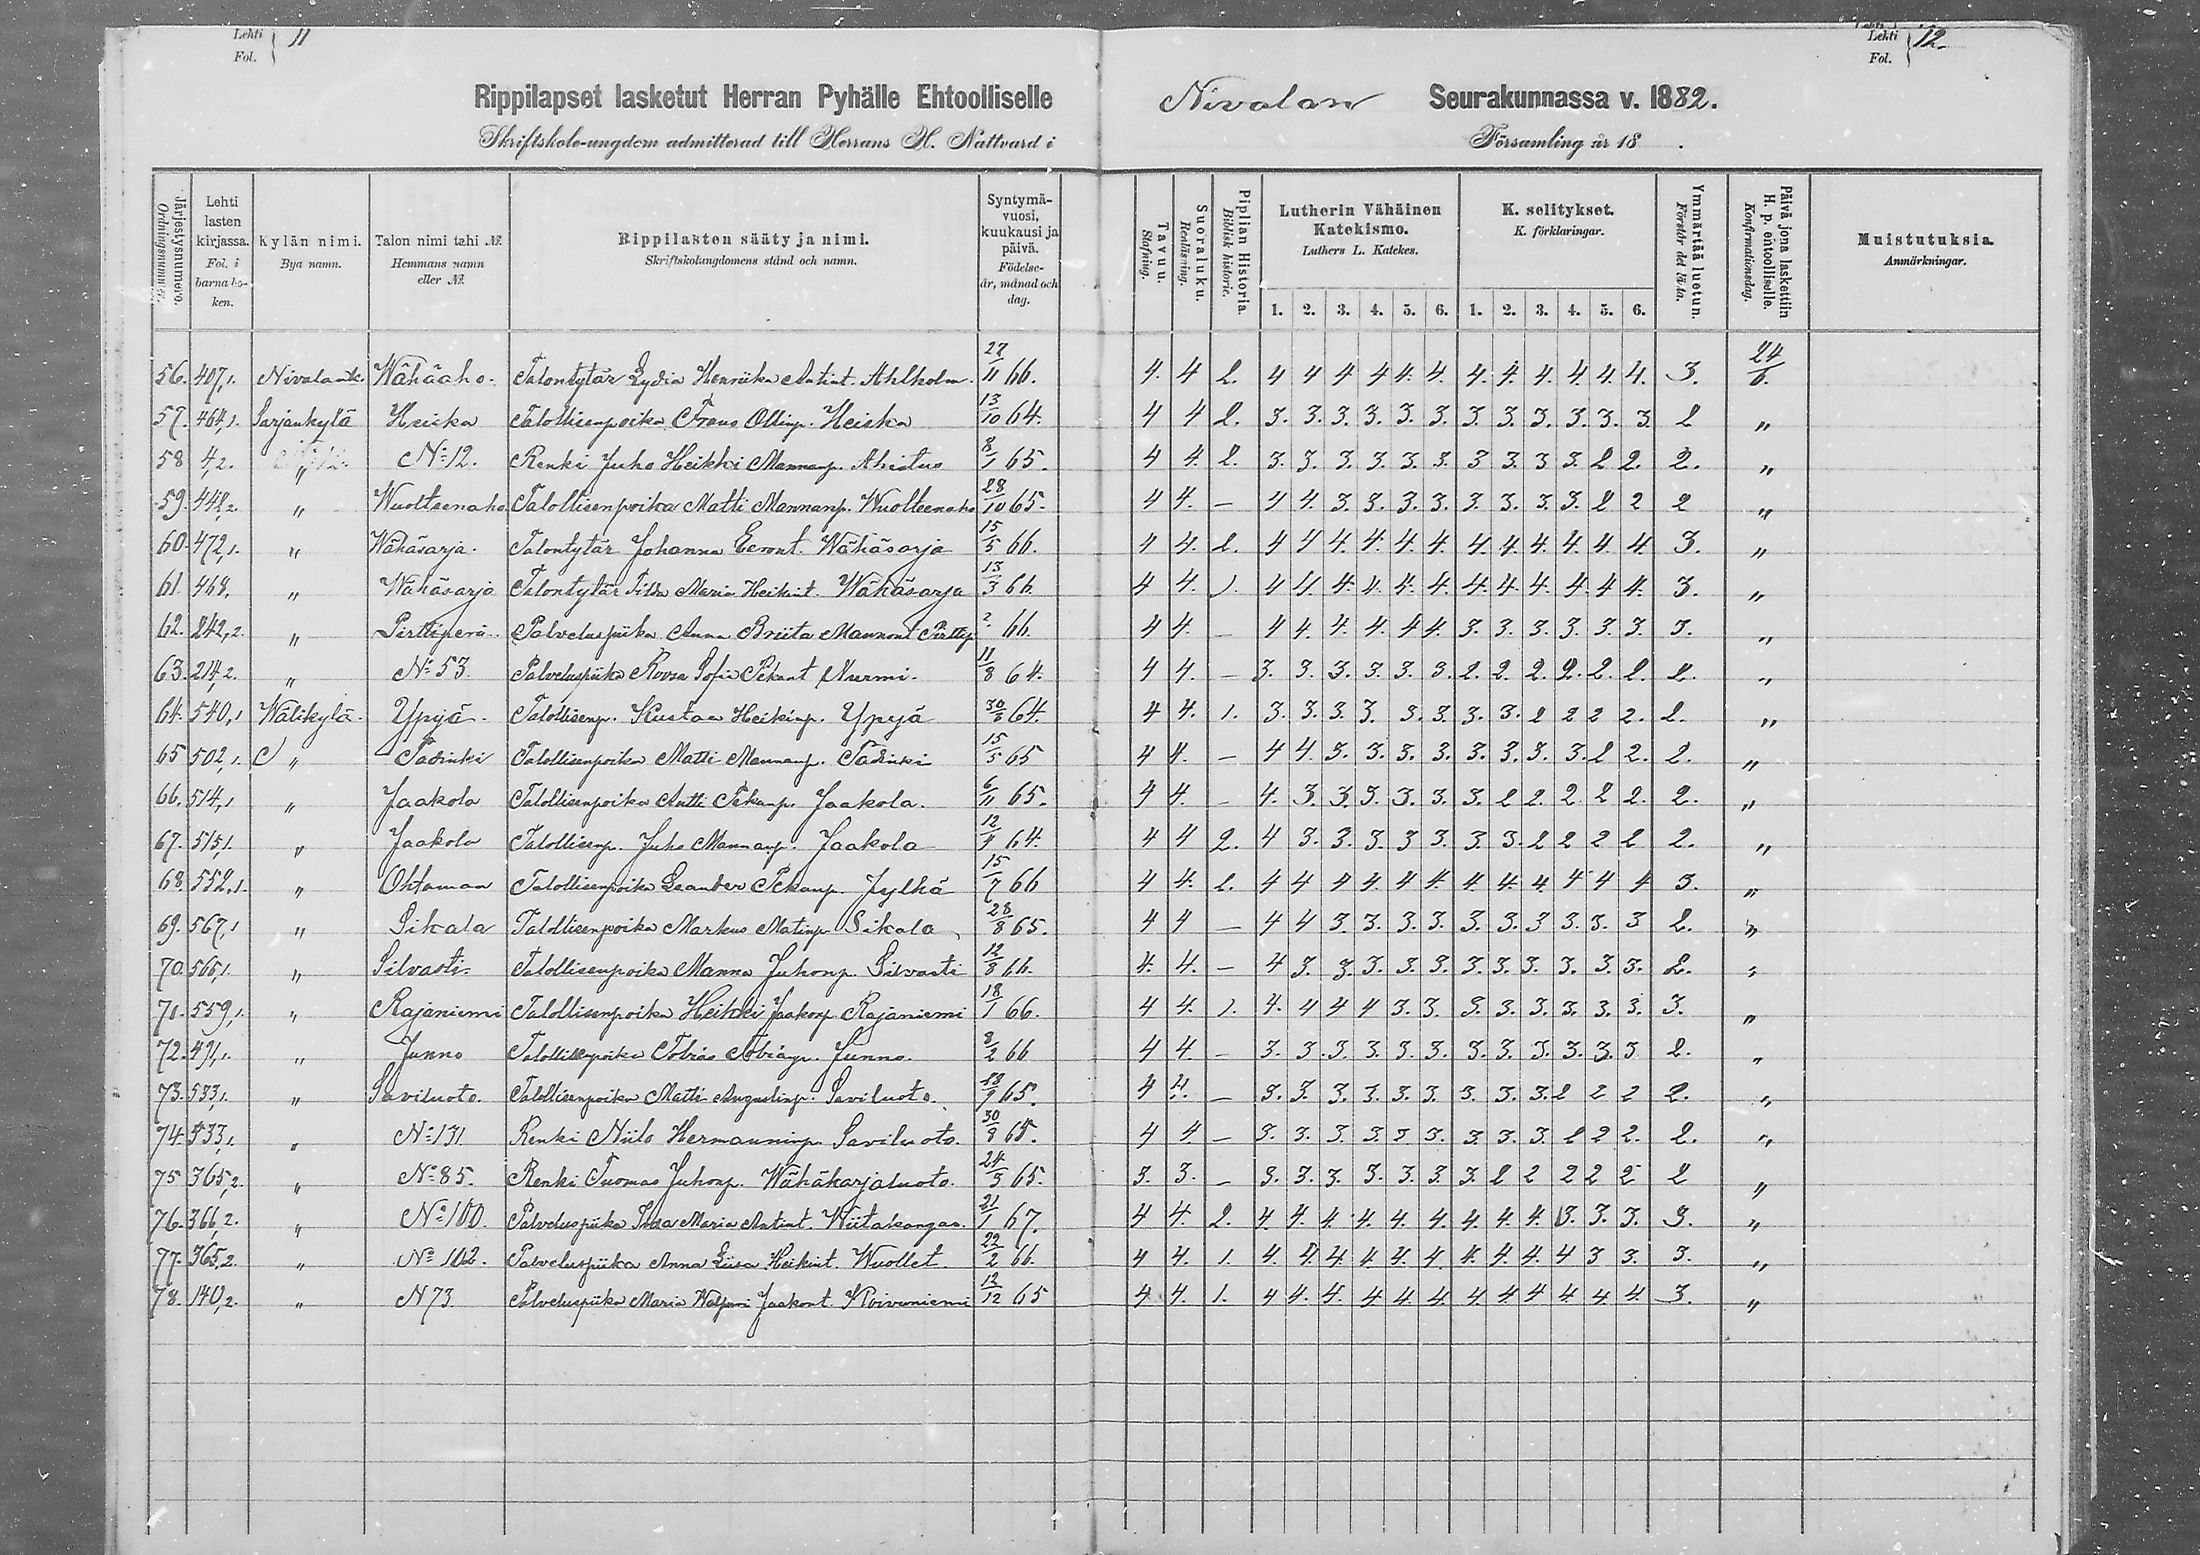 Lehti 11
Fol.
Lehti 12.
Fol.
Rippilapset lasketut Herran Pyhälle Ehtoolliselle Nivalan Seurakunnassa v. 1882.
Skriftskole-ungdom admitterad till Herrans H. Nattvard i Församling år 18 .
Järjestysnumero. Ordningsnummer.
Lehti lasten kirjassa. Fol. i barnaboken.
Kylän nimi. Bya namn.
Talon nimi tahi №. Hemmans namn eller №.
Rippilasten sääty ja nimi. Skriftskolungdomens stånd och namn.
Syntymävuosi, kuukausi ja päivä. Födelseår, månad och dag.
Tavuu. Stafning.
Suoraluku. Renläsning.
Piplian Historia. Biblisk historie.
Lutherin Vähäinen Katekismo. Luthers L. Katekes.
K. selitykset. K. förklaringar.
Ymmärtää luetun. Förstår det lästa.
Päivä jona laskettiin H. p. ehtoolliselle. Konfirmationsdag.
Muistutuksia. Anmärkningar.
1. 2. 3. 4. 5. 6. 1. 2. 3. 4. 5. 6.
56. 407,1. Wähäaho. Talontytär Lydia Henriika Antint. Ahlholm. 27/11 66. 4. 4 2. 4 4 4 4 4. 4. 4. 4. 4. 4. 4. 4. 3. 24/6.
57. 464,1. Sarjankylä Heiska Talollisenpoika Frans Ollinp. Heiska 13/10 64. 4 4 2. 3. 3. 3. 3. 3. 3. 3. 3. 3. 3. 3. 3. 2 "
58 4,2. " N:12. Renki Juho Heikki Mannanp. Ahistus 8/1 65. 4 4. 2. 3. 3. 3. 3. 3. 3. 3 3. 3 3. 2 2. 2. "
59. 448,2. " Wuolteenaho Talollisenpoika Matti Mannanp. Wuolteenaho 28/10 65. 4 4. – 4 4. 3. 3. 3. 3. 3. 3. 3. 3. 2 2 2 "
60. 472,1. " Wähäsarja. Talontytär Johanna Eeront. Wähäsarja 15/5 66. 4 4. 2. 4 4 4. 4. 4. 4. 4. 4. 4. 4. 4. 4 3. "
61 468, " Wähäsarja Talontytär Tilda Maria Heikint. Wähäsarja 13/3 66. 4 4. 1. 4 4. 4. 4. 4. 4. 4. 4. 4. 4. 4 4. 3. "
62. 242,2. " Pirttiperä Palveluspiika Anna Briita Mannant Pirttip 2. 66. 4 4. – 4 4. 4. 4. 4. 4. 3. 3. 3. 3. 3. 3. 3. "
63. 214,2. " N:53. Palveluspiika Roosa Sofia Pekant Nurmi. 11/8 64. 4 4. – 3. 3. 3. 3. 3. 3. 2. 2. 2. 2. 2. 2. 2. "
64. 540,1 Wälikylä. Ypyä. Talollisenp. Kustaa Heikinp. Ypyä 64. 4 4. 1. 3. 3. 3. 3. 3. 3. 3. 3. 2 2 2 2. 2. "
65 502,1. " Padinki Talollisenpoika Matti Mannanp. Padinki 15/5 65 4 4. – 4 4. 3. 3. 3. 3. 3. 3. 3. 3. 2 2. 2. "
66. 514,1 " Jaakola Talollisenpoika Antti Pekanp. Jaakola. 6/11 65. 4 4. – 4. 3. 3. 3. 3. 3. 3. 2 2. 2 2 2. 2. "
67. 515,1. " Jaakola Talollisenp. Juho Mannanp. Jaakola 64. 4 4 2. 4 3. 3. 3. 3 3. 3 3. 2 2 2 2 2. "
68. 552,1. " Ohtamaa Talollisenpoika Leander Pekanp. Jylhä 15/7 66 4 4. 2. 4 4 4 4. 4. 4. 4. 4. 4 4 4 4 3. "
69. 567,1 " Sikala Talollisenpoika Markus Matinp. Sikala 28/8 65. 4 4 – 4 4 3 3. 3. 3. 3. 3. 3 3. 3. 3 2. "
70. 565,1. " Silvasti. Talollisenpoika Manna Juhonp. Silvasti 12/8 66. 4. 4. – 4 3. 3. 3. 3. 3. 3. 3. 3. 3. 3. 3. 2. "
71. 559,1. " Rajaniemi Talollisenpoika Heikki Jaakonp. Rajaniemi 18/1 66. 4 4. 1. 4. 4 4 4 3. 3. 3. 3. 3. 3. 3. 3. 3. "
72. 491,1. " Junno Talollisenpoika Tobias Tobiasp. Junno. 8/2 66 4 4. – 3. 3. 3. 3. 3. 3. 3. 3. 3. 3. 3. 3 2. "
73. 533,1. " Saviluoto. Talollisenpoika Matti Augustinp. Saviluoto. 65. 4 4. – 3. 3. 3. 3. 3. 3. 3. 3. 3. 2 2 2 2. "
74. 533,1. " N:131 Renki Niilo Hermanninp. Saviluoto. 30/8 65. 4 4. – 3. 3. 3. 3. 3 3. 3. 3. 3. 2 2 2. 2. "
75 365,2. " N:85. Renki Tuomas Juhonp. Wähäkarjaluoto. 65. 3. 3. – 3. 3. 3. 3. 3. 3. 3. 2 2 2 2 2 2 "
76. 366,2. " N:100. Palveluspiika Iida Maria Antint. Wiitakangas. 21/1 67. 4 4. 2. 4. 4. 4. 4. 4. 4. 4. 4. 4. 3. 3. 3. 3. "
77. 365,2. " N:102. Palveluspiika Anna Liisa Heikint. Wuollet 22/2 66. 4 4. 1. 4. 4. 4. 4. 4. 4. 4. 4. 4. 4 3 3. 3. "
78. 140,2. " N 73 Palveluspiika Maria Walpuri Jaakont. Koivuniemi 12/12 65 4 4. 1. 4 4. 4. 4. 4. 4. 4. 4. 4 4. 4. 4. 3. "